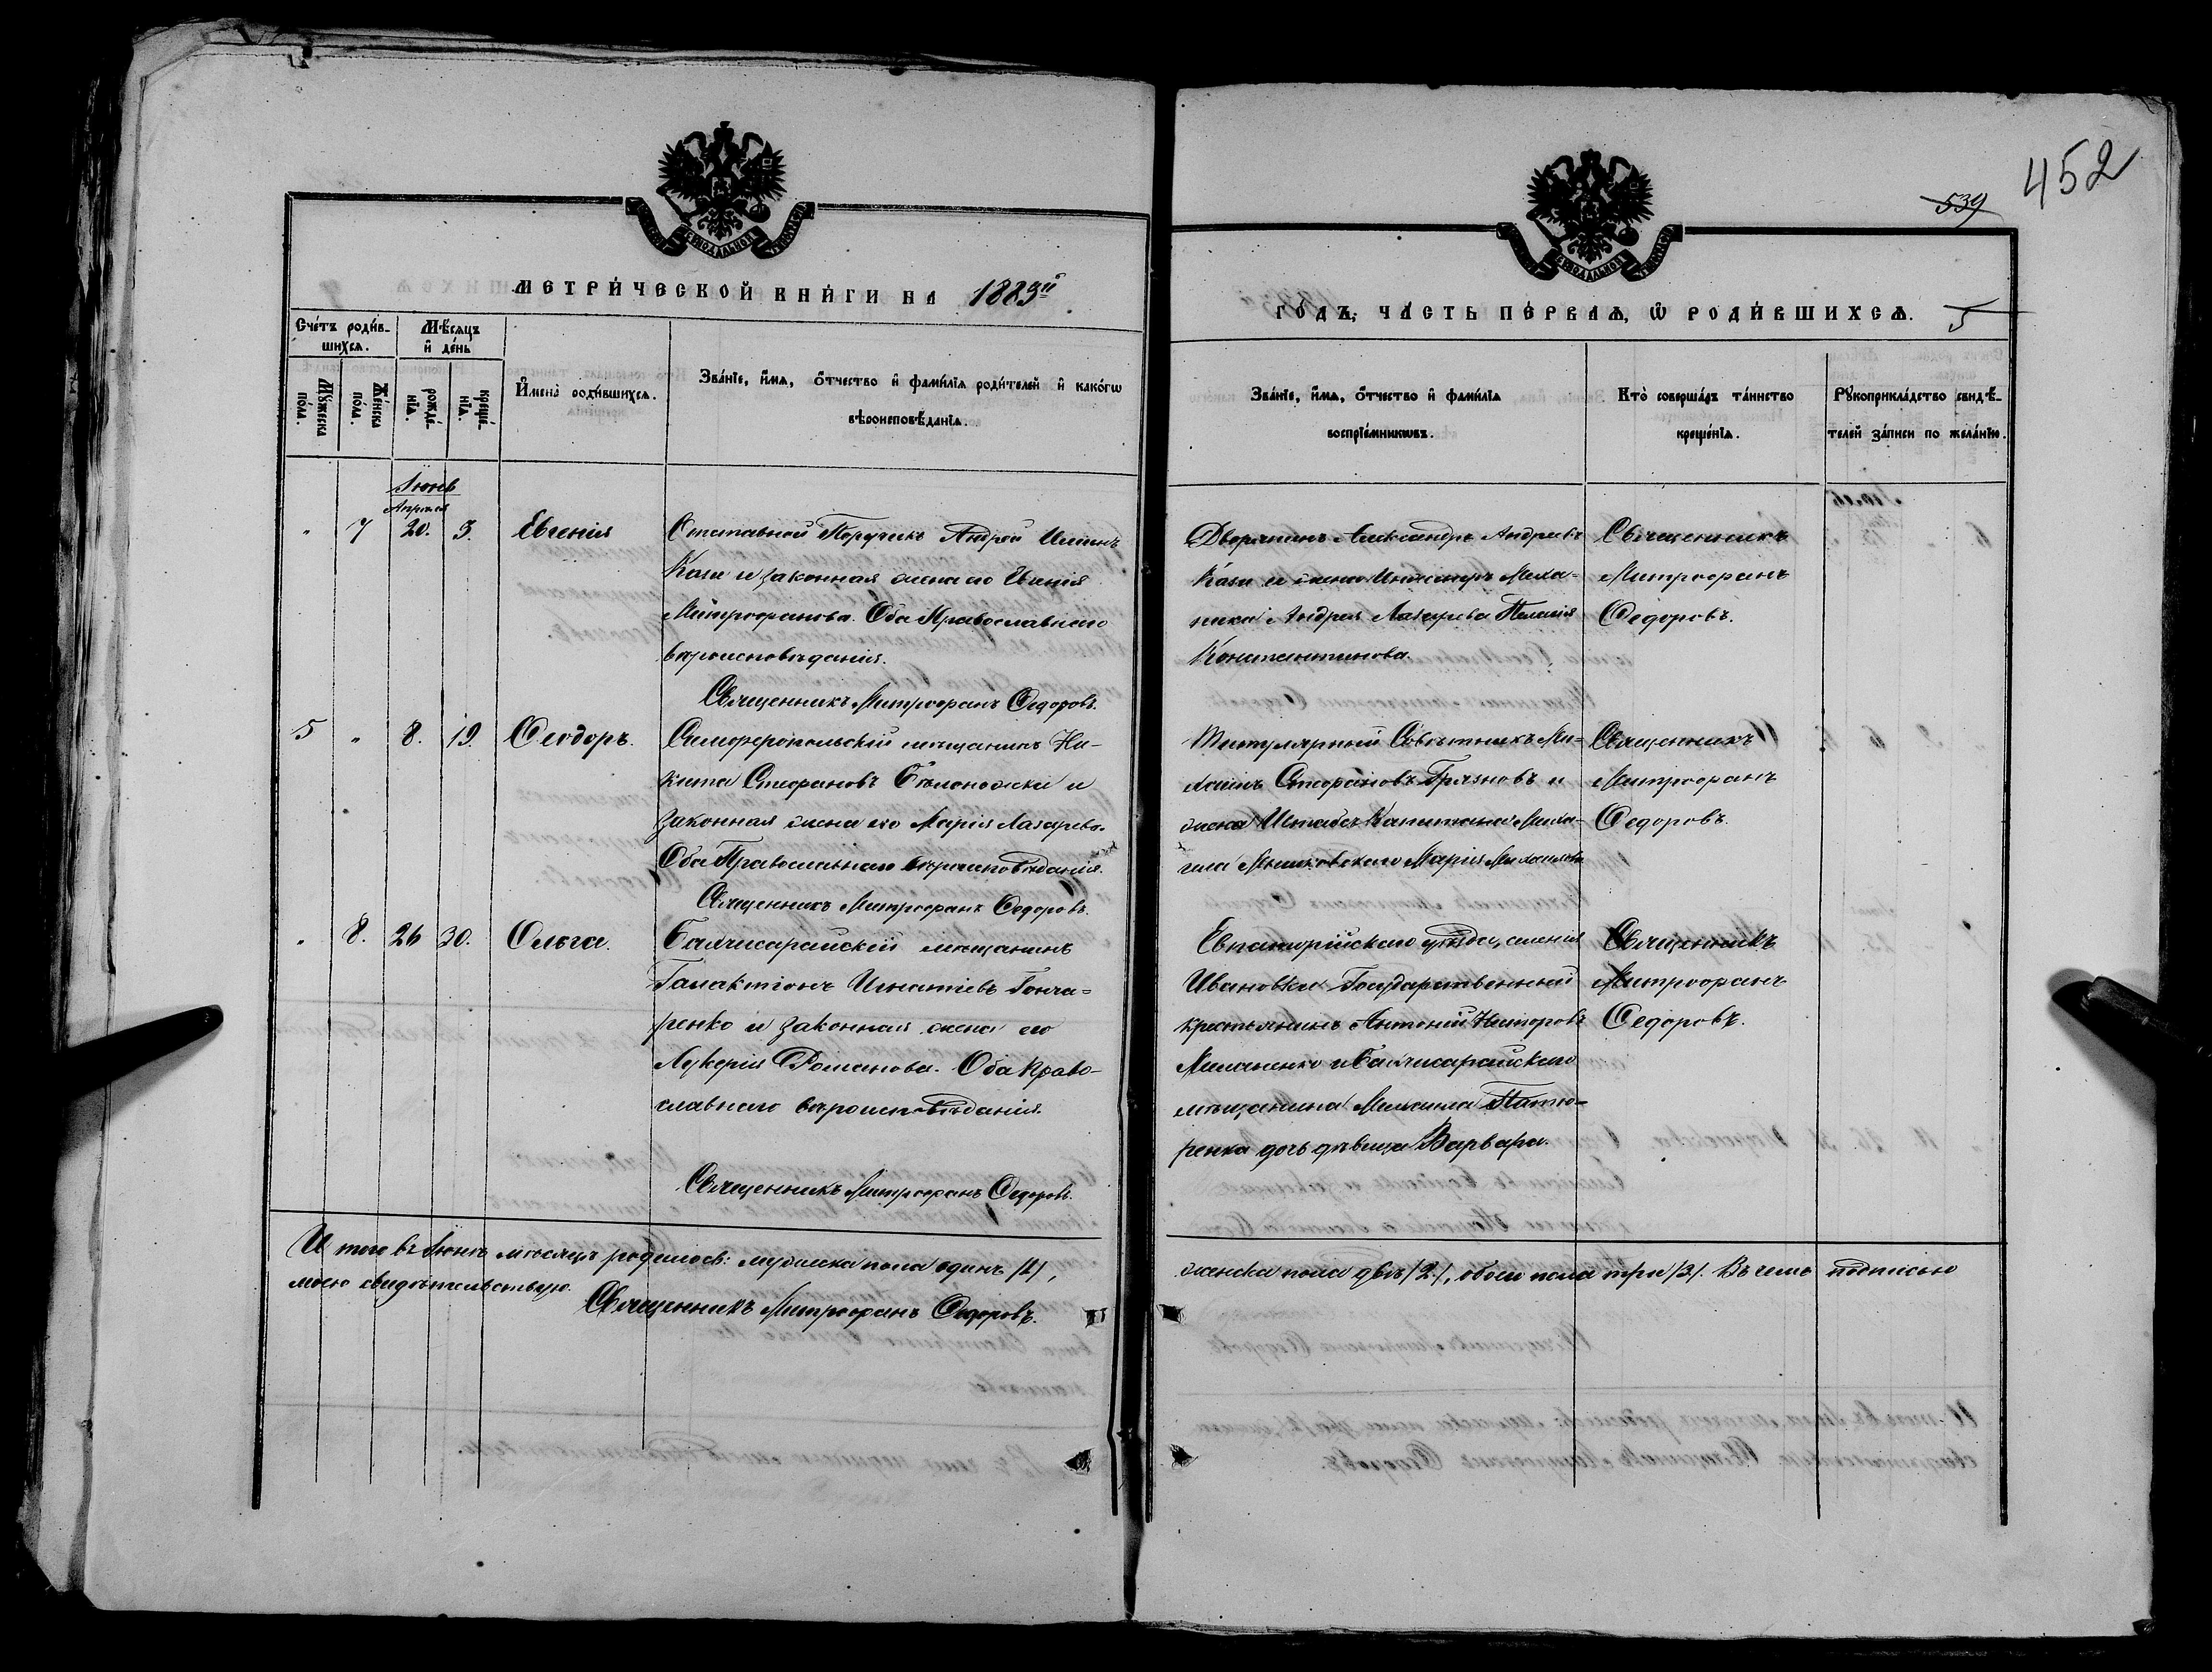 452
539
МЕТРИ́ЧЕСКОЙ КНИ́ГИ НА 1883й
ГО́ДЪ, ЧА́СТЬ ПЕ́РВАѦ, Ѡ РОДИ́ВШИХСѦ. 5
Сче́тъ роди́в-
шихсѧ.
Мѣ́сѧцъ
и҆ де́нь
Мꙋ́жеска
по́ла.
Же́нска
по́ла.
рожде́-
нїѧ.
креще́-
нїѧ.
И҆мена̀ роди́вшихсѧ.
Зва́нїе, и҆́мѧ, о҆́тчество и҆ фами́лїѧ роди́телей и҆ како́гѡ
вѣроисповѣ́данїѧ.
Зва́нїе, и҆́мѧ, о҆́тчество и҆ фами́лїѧ
воспрїе́мникѡвъ.
Кто̀ соверша́лъ та́инство
креще́нїѧ.
Рꙋкоприкла́дство свидѣ́-
телей за́писи по жела́нїю.
Іюнь
Апрѣля
" 7 20. 3. Евгенія
Отставной Поручикъ Андрей
Кази и законная жена его
Митрофанова. Оба Православнаго
вѣроисповѣданія.
Священникъ Митрофанъ Ѳедоровъ.
Дворянинъ Александръ Андреевъ
Кази и жена Инженеръ Меха-
ника Андрея Лазарева Пелагія
Константинова.
Священникъ
Митрофанъ
Ѳедоровъ.
5 " 8. 19. Ѳеодоръ.
Симферопольскій мѣщанинъ Ни-
кита Стефановъ и
законная жена его Марія Лазарева.
Оба Православнаго вѣроисповѣданія.
Священникъ Митрофанъ Ѳедоровъ.
Титулярный Совѣтникъ Ми-
хаилъ Стефановъ Грязновъ и
жена Штабсъ Капитана Миха-
ила Марія Михаилова
Священникъ
Митрофанъ
Ѳедоровъ.
" 8. 26 30. Ольга.
Бахчисарайскій мѣщанинъ
Галактіонъ Игнатіевъ Гонча-
ренко и законная жена его
Лукерія Романова. Оба Право-
славнаго вѣроисповѣданія.
Священникъ Митрофанъ Ѳедоровъ.
Евпаторійскаго уѣзда, имѣнія
Ивановки Государственный
крестьянинъ Антоній
и Бахчисарайскаго
мѣщанина
ренка дочь дѣвица Варвара.
Священникъ
Митрофанъ
Ѳедоровъ.
И того въ Іюнѣ мѣсяцѣ родилось: мужеска пола одинъ /1/, женска пола двѣ /2/, обоего пола три /3/. Въ чемъ подписью
моею свидѣтельствую.
Священникъ Митрофанъ Ѳедоровъ.